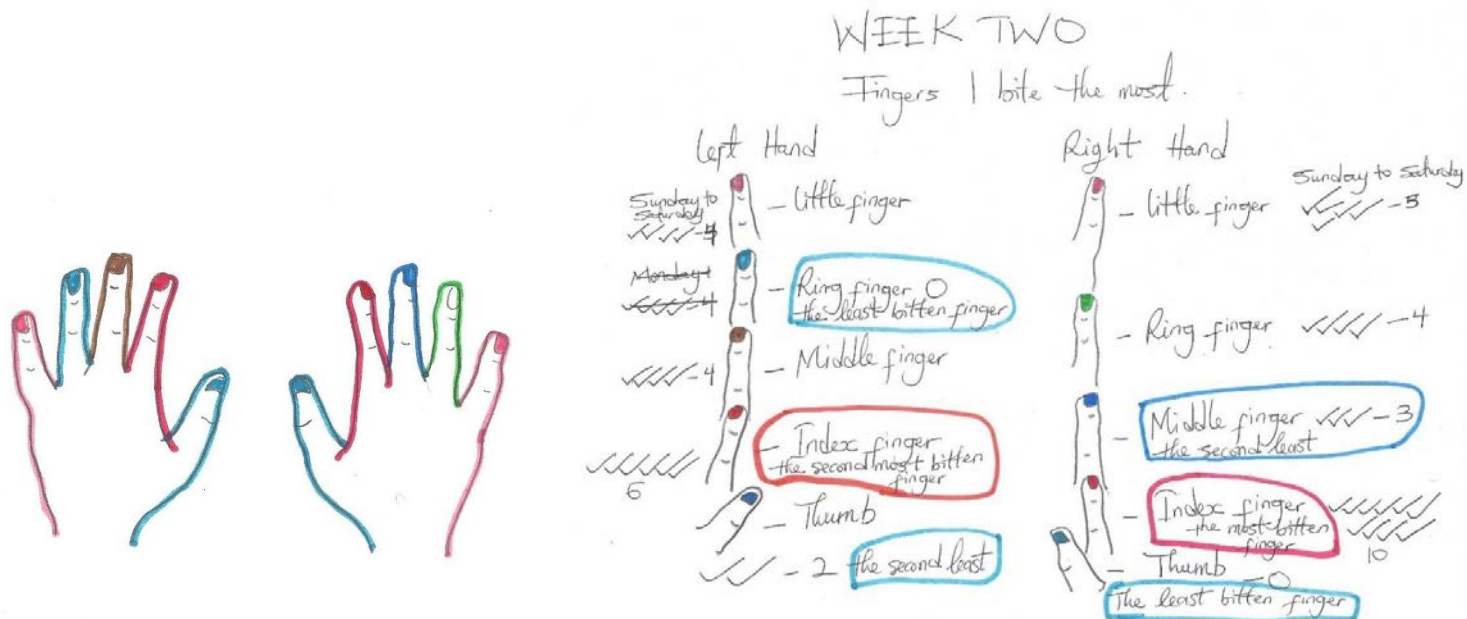 WEEK TWO
Fingers I bite the most.
Left Hand
Sunday to
Saturday
✓✓✓✓-4
- Little finger
Monday
✓✓✓✓-4
- Ring finger 0
the least bitten finger
✓✓✓✓-4
- Middle finger
✓✓✓✓✓✓
6
- Index finger
the second most bitten
finger
- Thumb
✓✓ - 2 the second least
Right Hand
Sunday to Saturday
- little finger ✓✓✓✓✓-5
- Ring finger ✓✓✓✓-4
- Middle finger ✓✓✓-3
the second least
- Index finger
the most bitten
finger
10
- Thumb -0
The least bitten finger